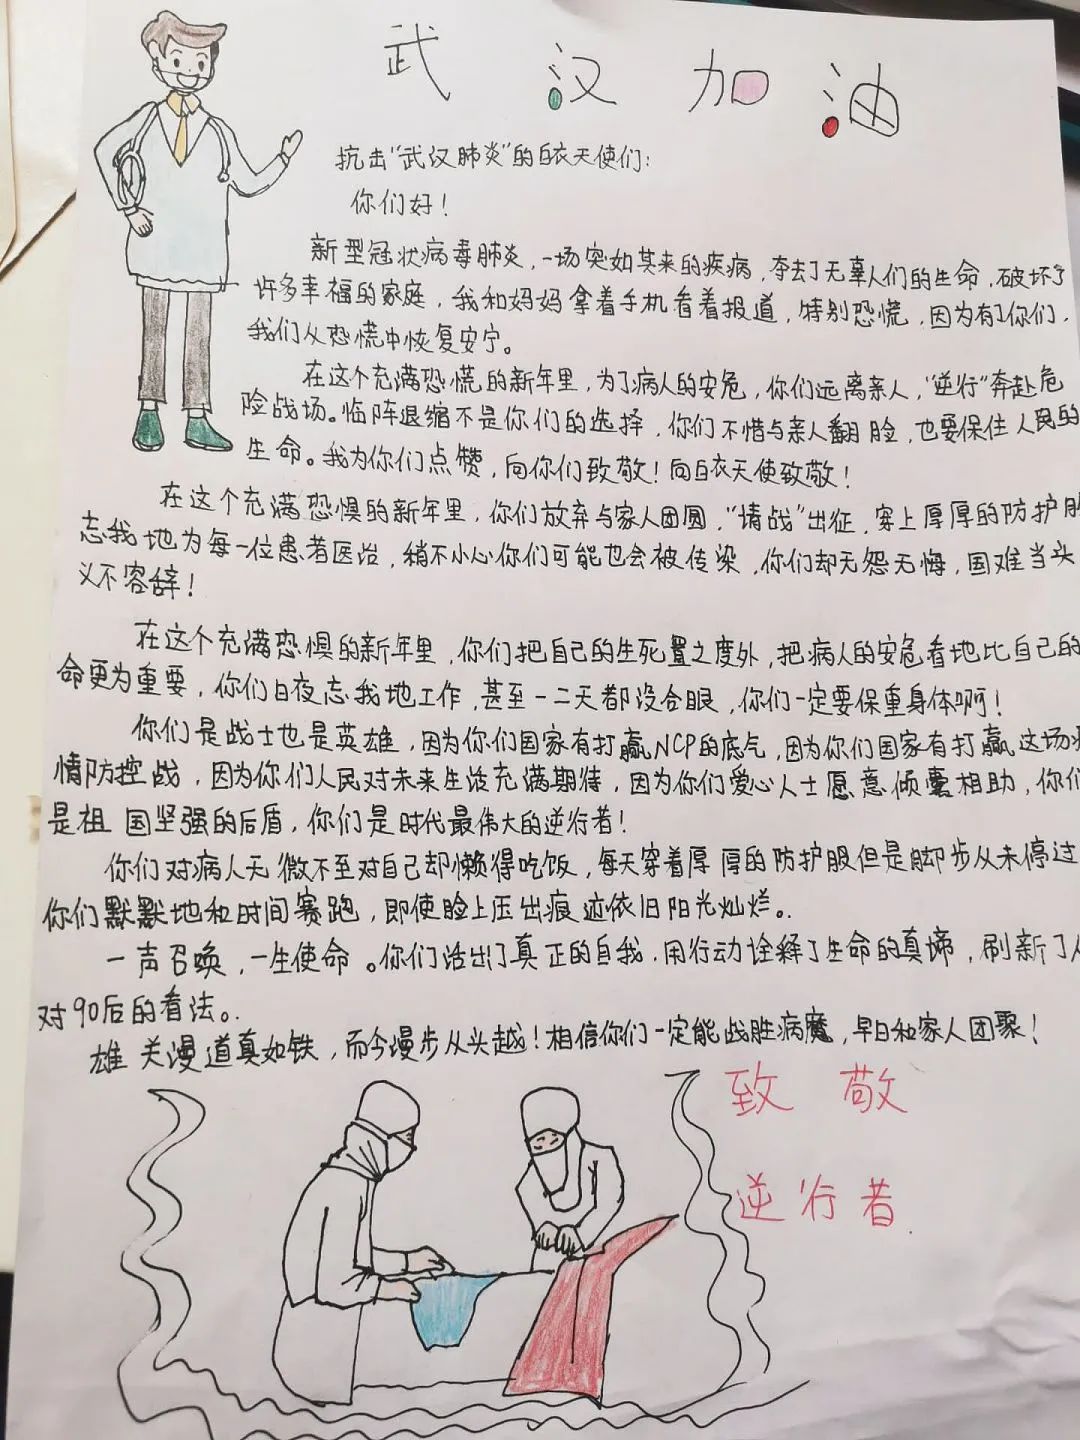 武汉加油
抗击“武汉肺炎”的白衣天使们:
你们好!
新型冠状病毒肺炎,一场突如其来的疾病,夺去了无辜人们的生命,破坏了
许多幸福的家庭,我和妈妈拿着手机看着报道,特别恐慌,因为有了你们,
我们从恐慌中恢复安宁。
在这个充满恐慌的新年里,为了病人的安危,你们远离亲人,“逆行”奔赴危
险战场。临阵退缩不是你们的选择,你们不惜与亲人翻脸,也要保住人民的
生命。我为你们点赞,向你们致敬!向白衣天使致敬!
在这个充满恐惧的新年里,你们放弃与家人团圆,“情战”出征,穿上厚厚的防护服
忘我地为每一位患者医治,稍不小心你们可能也会被传染,你们却无怨无悔,国难当头
义不容辞!
在这个充满恐惧的新年里,你们把自己的生死置之度外,把病人的安危看地比自己的
命更为重要,你们日夜忘我地工作,甚至一二天都没合眼,你们一定要保重身体啊!
你们是战士也是英雄,因为你们国家有打赢NCP的底气,因为你们国家有打赢这场疫
情防控战,因为你们人民对未来生活充满期待,因为你们爱心人士愿意倾囊相助,你们
是祖国坚强的后盾,你们是时代最伟大的逆行者!
你们对病人无微不至对自己却懒得吃饭,每天穿着厚厚的防护服但是脚步从未停过
你们默默地和时间赛跑,即使脸上压出痕迹依旧阳光灿烂。
一声召唤,一生使命。你们活出了真正的自我.用行动诠释了生命的真谛,刷新了人
对90后的看法。
雄关漫道真如铁,而今漫步从头越!相信你们一定能战胜病魔,早日和家人团聚!
致敬
逆行者.